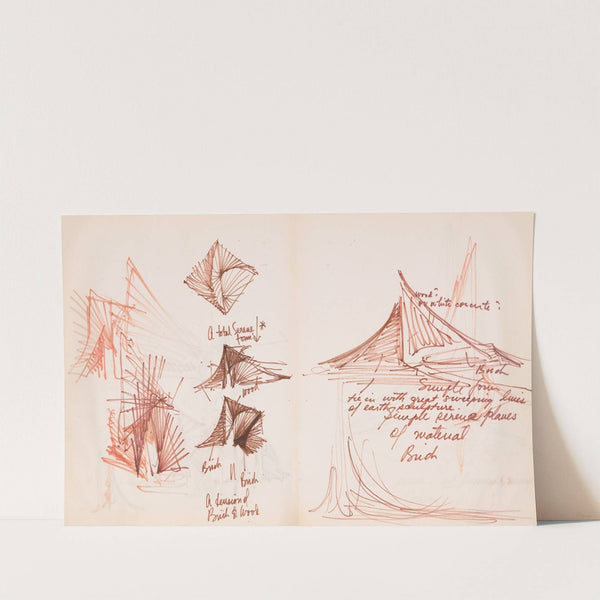 A total Serene
form!*
wood
Brick
Brick
A tension of
Brick & Wood
wood?
or white concrete?
Brick
Simple form
tie in with great sweeping lines
of earth sculpture.
Simple serene planes
of material
Brick